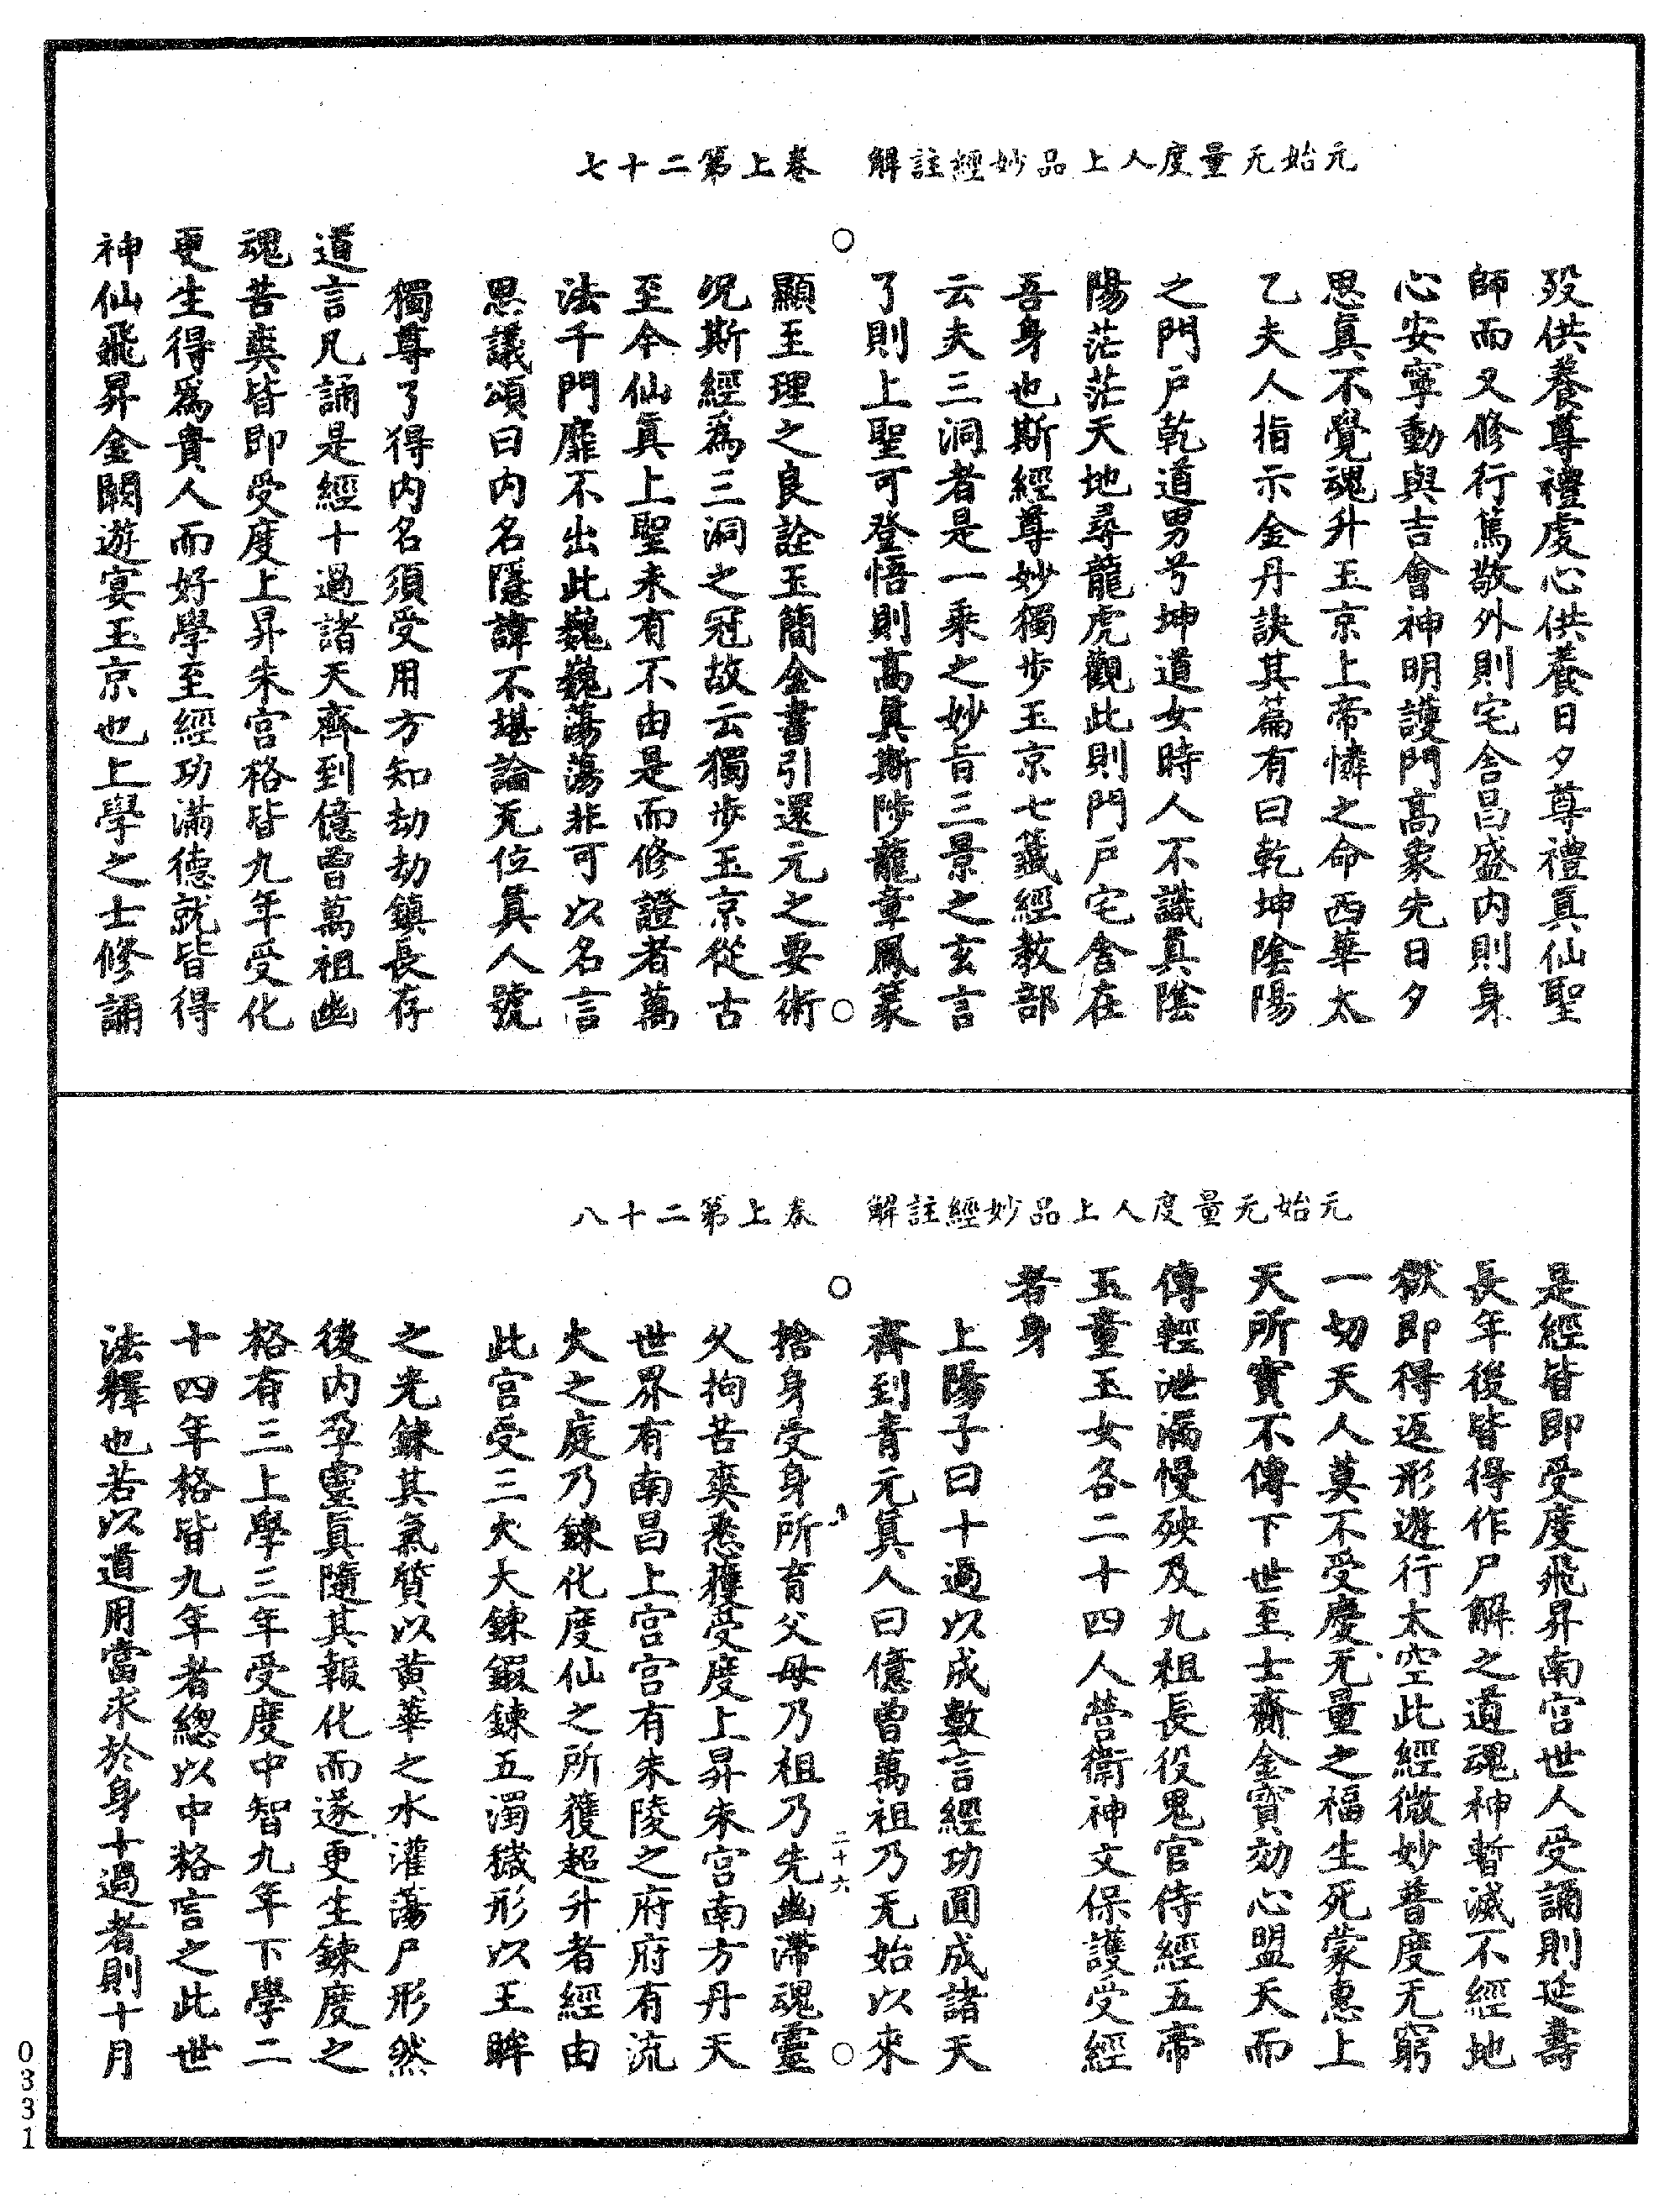 元始无量度人上品妙經註解　卷上第二十七
殁供養尊禮虔心供養日夕尊禮真仙聖
師而又修行篤敬外則宅舍昌盛内則身
心安寧動與吉會神明護門高衆先日夕
思真不覺魂升玉京上帝憐之命西華太
乙夫人指示金丹訣其篇有曰乾坤陰陽
之門戶乾道男兮坤道女時人不識真陰
陽茫茫天地尋龍虎觀此則門戶宅舍在
吾身也斯經尊妙獨步玉京七籤經教部
云夫三洞者是一乘之妙旨三景之玄言
了則上聖可登悟則高真斯陟龍章鳳篆
顯王理之良詮玉簡金書引還元之要術
况斯經爲三洞之冠故云獨步玉京從古
至今仙真上聖未有不由是而修證者萬
法千門靡不出此巍巍蕩蕩非可以名言
思議頌曰内名隱諱不堪論无位真人號
獨尊了得内名須受用方知劫劫鎮長存
道言凡誦是經十過諸天齊到億曾萬祖幽
魂苦爽皆即受度上昇朱宫格皆九年受化
更生得爲貴人而好學至經功滿德就皆得
神仙飛昇金闕遊宴玉京也上學之士修誦
元始无量度人上品妙經註解　卷上第二十八
是經皆即受度飛昇南宫世人受誦則延壽
長年後皆得作尸解之道魂神暫滅不經地
獄即得返形遊行太空此經微妙普度无窮
一切天人莫不受慶无量之福生死蒙惠上
天所寶不傳下世至士齎金寶効心盟天而
傳輕泄漏慢殃及九祖長役鬼官侍經五帝
玉童玉女各二十四人營衛神文保護受經
者身
上陽子曰十過以成數言經功圓成諸天
齊到青元真人曰億曾萬祖乃无始以來
捨身受身所育父母乃祖乃先幽滯魂靈
二十六
久拘苦爽悉獲受度上昇朱宫南方丹天
世界有南昌上宫宫有朱陵之府府有流
火之庭乃鍊化度仙之所獲超升者經由
此宫受三火大鍊鍜鍊五濁穢形以王眸
之光鍊其氣質以黄華之水灌蕩尸形然
後内孕靈真隨其報化而遂更生鍊度之
格有三上學三年受度中智九年下學二
十四年格皆九年者總以中格言之此世
法釋也若以道用當求於身十過者則十月
0331